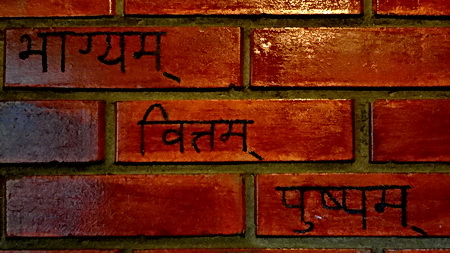 भाग्यम्
वित्तम्
पुष्पम्